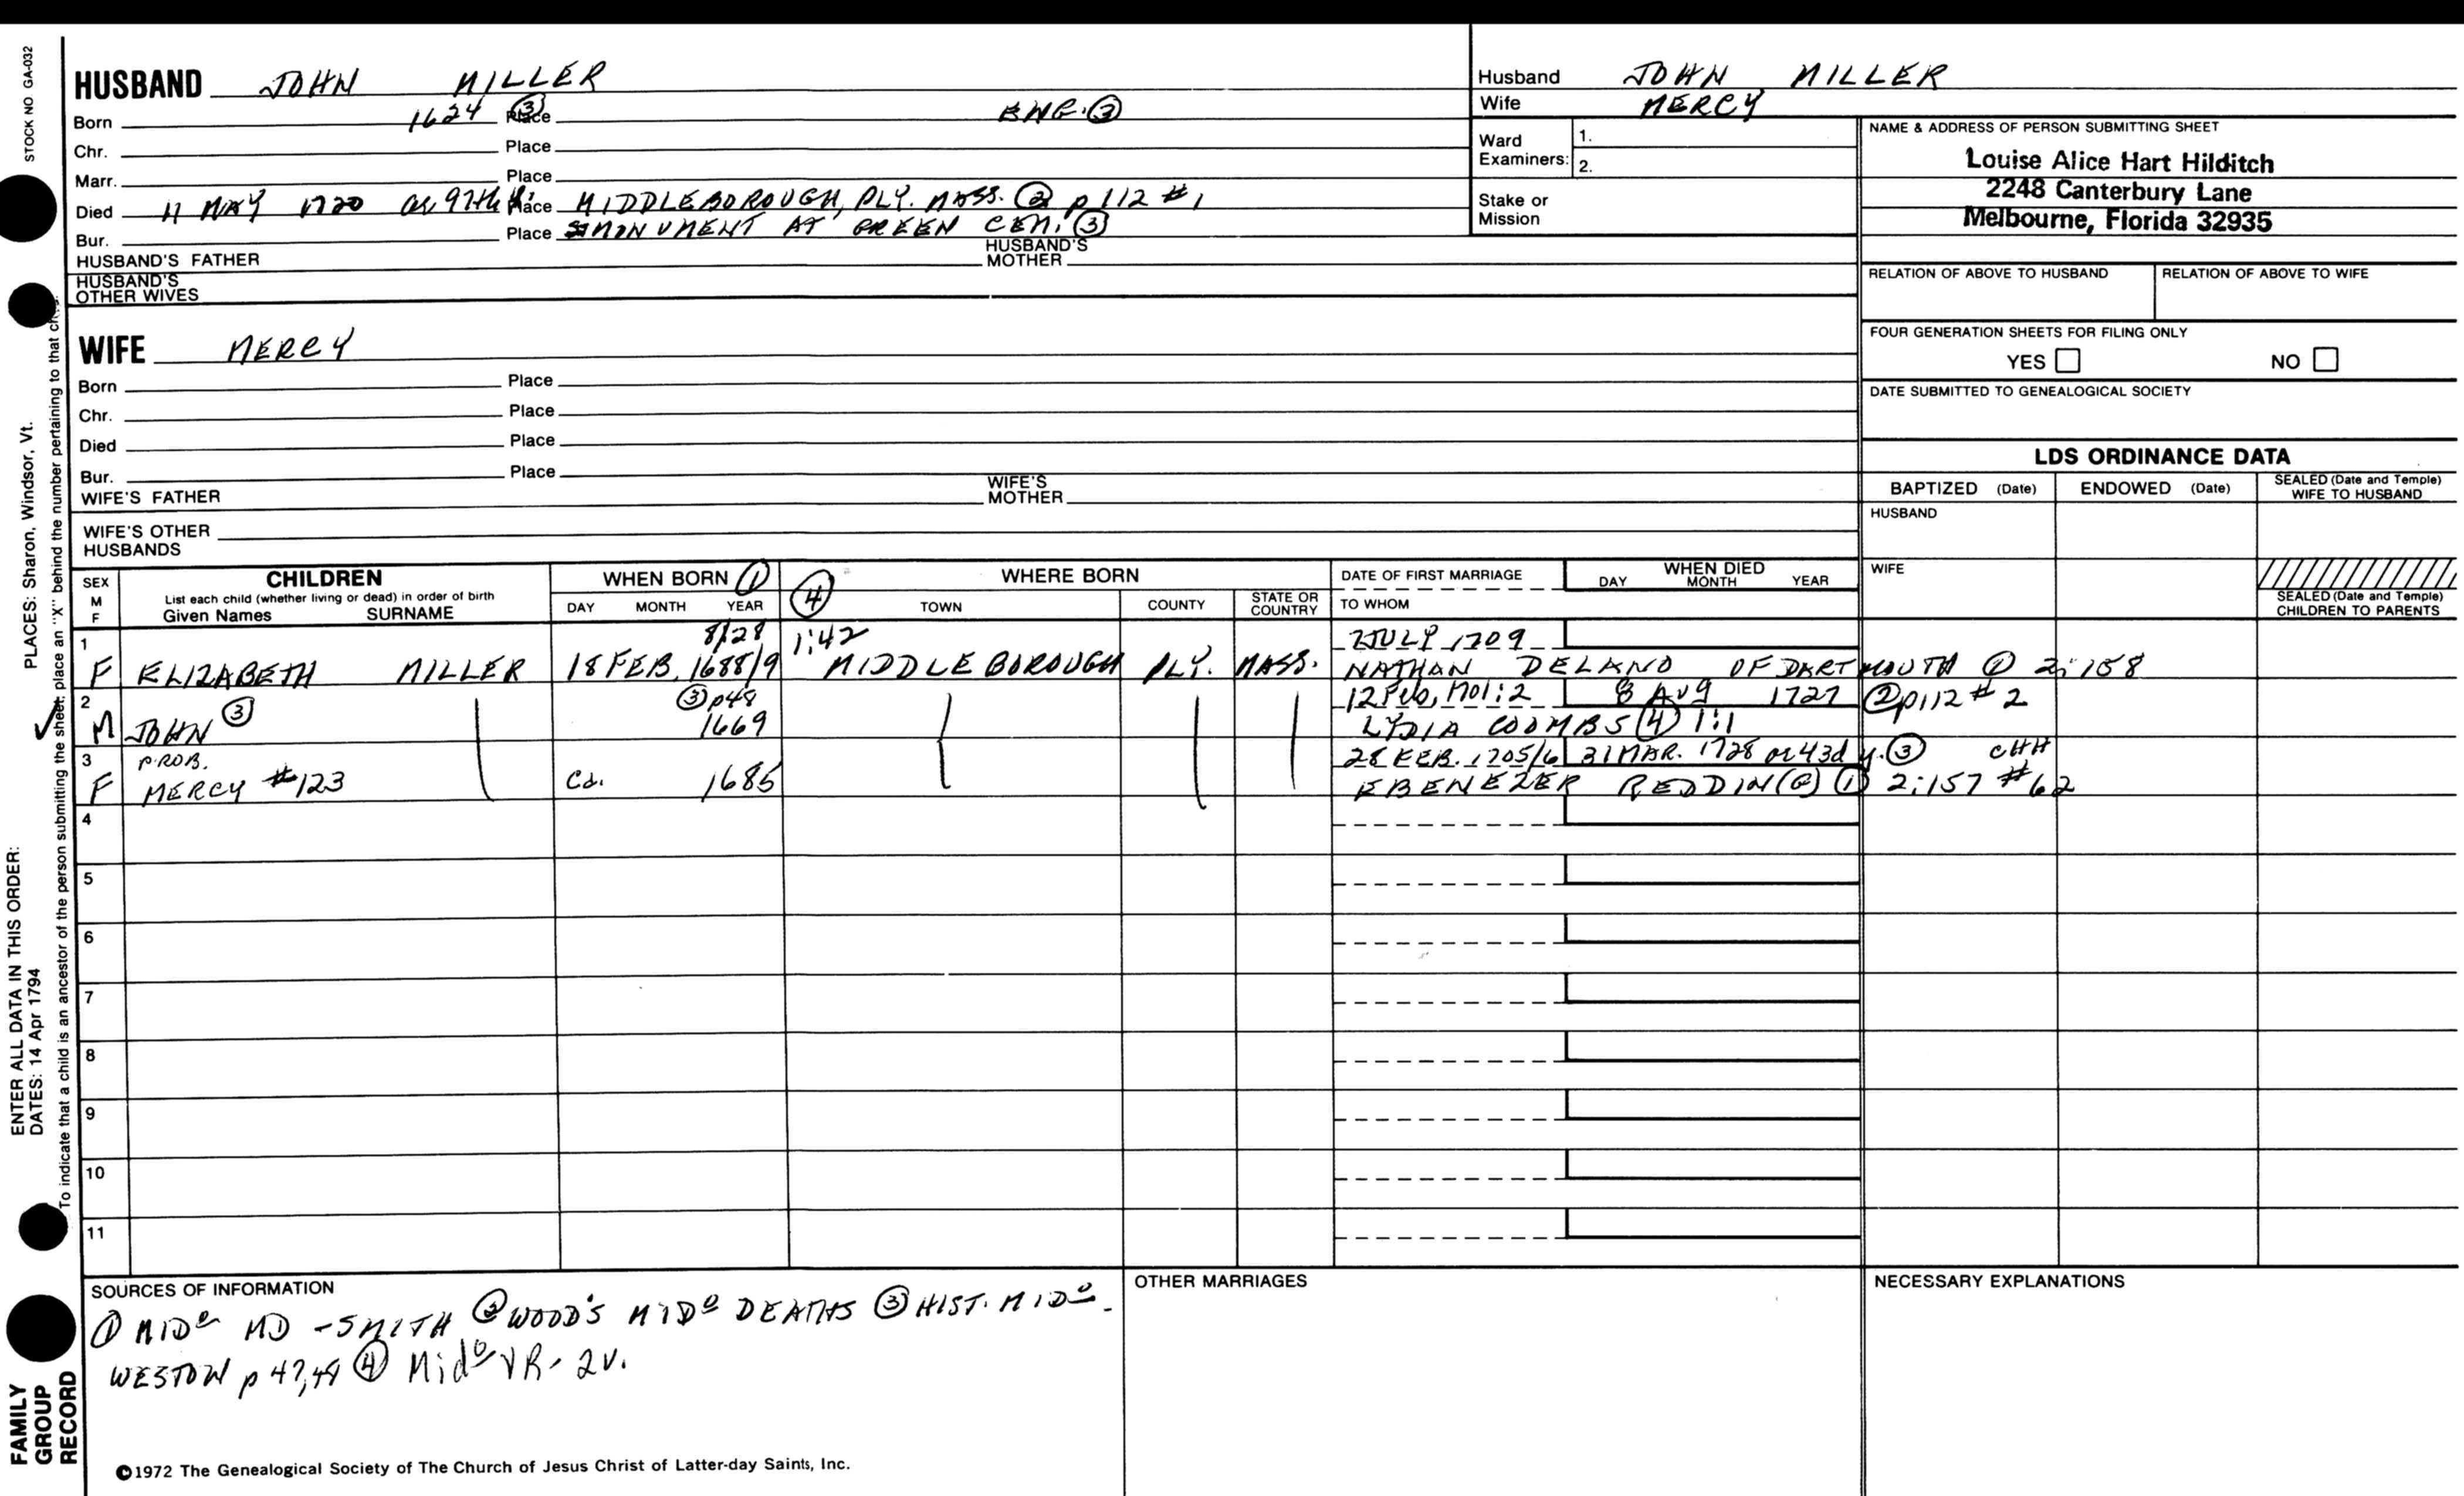 STOCK NO GA-032
HUSBAND JOHN MILLER
Born 1624 ③ Place ENG. ③
Chr. Place
Marr. Place
Died 11 MAY 1720 97th Place MIDDLEBOROUGH, PLY. MASS. ② p 112 # 1
Bur. Place MONUMENT AT GREEN CEM. ③
HUSBAND'S FATHER HUSBAND'S MOTHER
HUSBAND'S OTHER WIVES
WIFE MERCY
Born Place
Chr. Place
Died Place
Bur. Place
WIFE'S FATHER WIFE'S MOTHER
WIFE'S OTHER HUSBANDS
Husband JOHN MILLER
Wife MERCY
Ward Examiners: 1.
2.
Stake or Mission
NAME & ADDRESS OF PERSON SUBMITTING SHEET
Louise Alice Hart Hilditch
2248 Canterbury Lane
Melbourne, Florida 32935
RELATION OF ABOVE TO HUSBAND RELATION OF ABOVE TO WIFE
FOUR GENERATION SHEETS FOR FILING ONLY
YES NO
DATE SUBMITTED TO GENEALOGICAL SOCIETY
LDS ORDINANCE DATA
BAPTIZED (Date) ENDOWED (Date) SEALED (Date and Temple) WIFE TO HUSBAND
HUSBAND
WIFE
SEALED (Date and Temple) CHILDREN TO PARENTS
SEX M F
CHILDREN
List each child (whether living or dead) in order of birth
Given Names SURNAME
WHEN BORN ①
DAY MONTH YEAR
④ WHERE BORN
TOWN COUNTY STATE OR COUNTRY
DATE OF FIRST MARRIAGE
TO WHOM
WHEN DIED
DAY MONTH YEAR
1 8/28 1:42 2 JULY 1709
F ELIZABETH MILLER 18 FEB. 1688/9 MIDDLEBOROUGH PLY. MASS. NATHAN DELANO OF DARTMOUTH ① 2:158
2 ③ p48 12 Feb, 1701:2 8 Aug 1727 ② p112 # 2
M JOHN ③ 1669 LYDIA COOMBS ④ 1:1
3 PROB. 28 FEB. 1705/6 31 MAR. 1728 43d y. ③ CHH
F MERCY #123 Ca. 1685 EBENEZER REDDIN(G) ① 2:157 #62
4
5
6
7
8
9
10
11
SOURCES OF INFORMATION
① MIDᵒ MD - SMITH ② WOOD'S MIDᵒ DEATHS ③ HIST. MIDᵒ -
WESTON p 47,48 ④ Midᵒ VR - 2v.
OTHER MARRIAGES
NECESSARY EXPLANATIONS
©1972 The Genealogical Society of The Church of Jesus Christ of Latter-day Saints, Inc.
ENTER ALL DATA IN THIS ORDER:
DATES: 14 Apr 1794 PLACES: Sharon, Windsor, Vt.
To indicate that a child is an ancestor of the person submitting the sheet, place an "X" behind the number pertaining to that
FAMILY
GROUP
RECORD